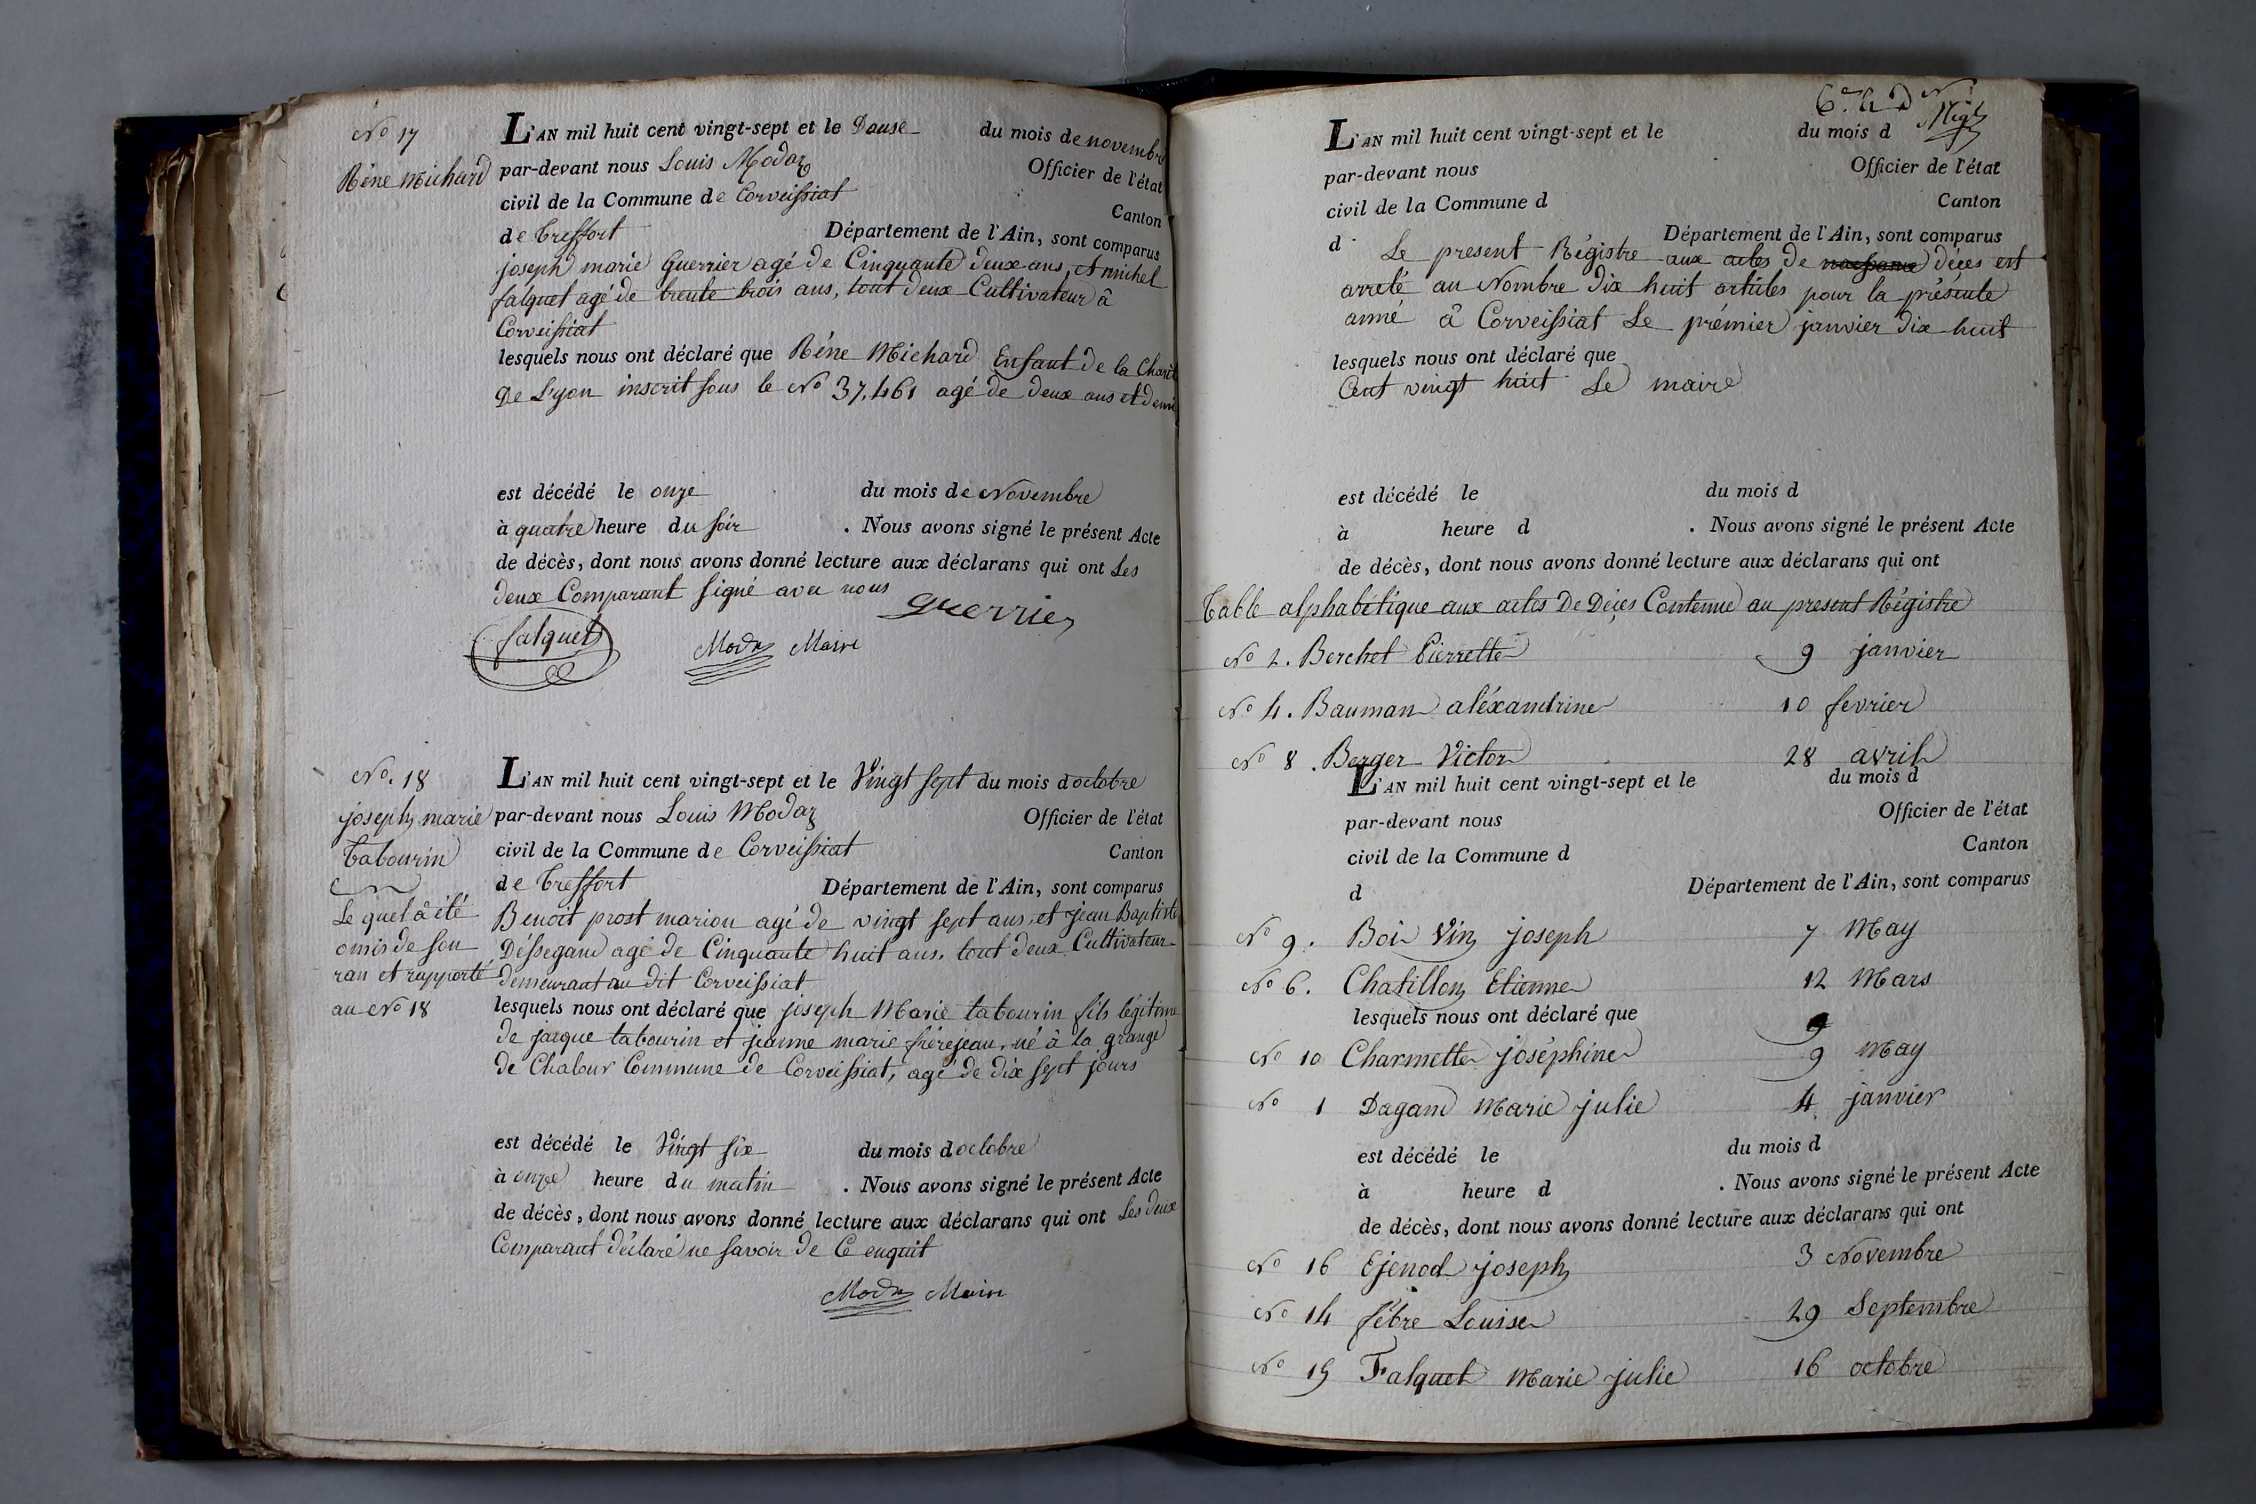 No 17
Réne Michard
L'AN mil huit cent vingt-sept et le Douse du mois de novembre
par-devant nous Louis Modaz Officier de l'état
civil de la Commune de Corveissiat Canton
de Treffort Département de l'Ain, sont comparus
joseph marie Guerrier agé de Cinquante deux ans, et michel
falquet agé de trente trois ans, tout deux Cultivateur â
Corveissiat
lesquels nous ont déclaré que Réne Michard Enfant de la Charité
De Lyon inscrit sous le No 37,461 agé de deux ans et demi
est décédé le onze du mois de Novembre
à quatre heure du soir . Nous avons signé le présent Acte
de décès, dont nous avons donné lecture aux déclarans qui ont Les
deux Comparant signé avec nous
guerrier
falquet
Modaz Maire
No. 18
joseph marie
tabourin
Le quel â été
omis de son
ran et rapporté
au No 18
L'AN mil huit cent vingt-sept et le Vingt sept du mois d octobre
par-devant nous Louis Modaz Officier de l'état
civil de la Commune de Corveissiat Canton
de Treffort Département de l'Ain, sont comparus
Benoit prost marion agé de vingt sept ans, et jean Baptiste
Déssegand agé de Cinquante huit ans, tout deux Cultivateur
demeurant au dit Corveissiat
lesquels nous ont déclaré que joseph Marie tabourin fils légitime
de jacque tabourin et jeanne marie frérejean, né à la grange
de Chalour Commune de Corveissiat, agé de dix sept jours
est décédé le Vingt six du mois d octobre
à onze heure du matin . Nous avons signé le présent Acte
de décès, dont nous avons donné lecture aux déclarans qui ont Les deux
Comparant déclaré ne savoir de Ce enquit
Modaz Maire
L'AN mil huit cent vingt-sept et le du mois d
par-devant nous Officier de l'état
civil de la Commune d Canton
d Département de l'Ain, sont comparus
Le present Régistre aux actes de naissance déces est
arreté au Nombre dix huit articles pour la présente
anné â Corveissiat Le prémier janvier dix huit
lesquels nous ont déclaré que
Cent vingt huit Le maire
est décédé le du mois d
à heure d . Nous avons signé le présent Acte
de décès, dont nous avons donné lecture aux déclarans qui ont
Table alphabétique aux actes De Déces Contenue au present Régistre
No 2. Berchet Pierrette 9 janvier
No 4. Bauman aléxandrine 10 fevrier
No 8. Berger Victor 28 avril
L'AN mil huit cent vingt-sept et le du mois d
par-devant nous Officier de l'état
civil de la Commune d Canton
d Département de l'Ain, sont comparus
No 9. Boi Vin joseph 7 May
No 6. Chatillon Etienne 12 Mars
lesquels nous ont déclaré que
No 10 Charmette joséphine 9 May
No 1 Dagand Marie julie 4 janvier
est décédé le du mois d
à heure d . Nous avons signé le présent Acte
de décès, dont nous avons donné lecture aux déclarans qui ont
No 16 Ejenod joseph 3 Novembre
No 14 fébre Louise 29 Septembre
No 15 Falquet Marie julie 16 octobre